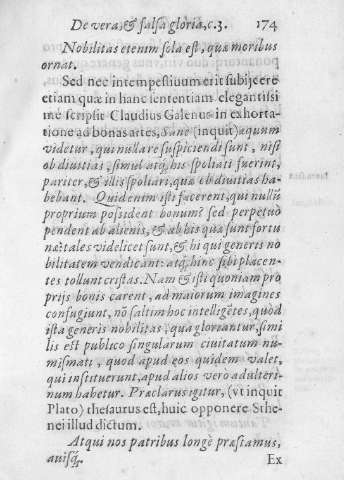 De vera, & falsa gloria, c.3. 174
Nobilitas etenim sola est, quæ moribus
ornat.
Sed nec intempestiuum erit subijcere
etiam quæ in hanc sententiam elegantissi
mè scripsit Claudius Galenus in exhorta-
tione ad bonas artes, Sanè (inquit) æquum
videtur, qui nulla re suspiciendi sunt, nisi
ob diuitias, simul atq; his spoliati fuerint,
pariter, & illis spoliari, quæ ob diuitias ha-
bebant. Quid enim isti facerent, qui nulliu
proprium possident bonum? sed perpetuò
pendent ab alienis, & ab his quæ sunt fortu
næ: tales videlicet sunt, & hi qui generis no
bilitatem vendicant: atq; hinc sibi placen-
tes tollunt cristas. Nam & isti quoniam pro
prijs bonis carent, ad maiorum imagines
confugiunt, nō saltim hoc intelligētes, quòd
ista generis nobilitas, qua gloriantur, simi
lis est publico singularum ciuitatum nu-
mismati, quod apud eos quidem valet,
qui instituerunt, apud alios vero adulteri-
num habetur. Præclarus igitur, (vt inquit
Plato) thesaurus est, huic opponere Sthe-
nei illud dictum.
Atqui nos patribus longè præstamus,
auisq;.
Ex